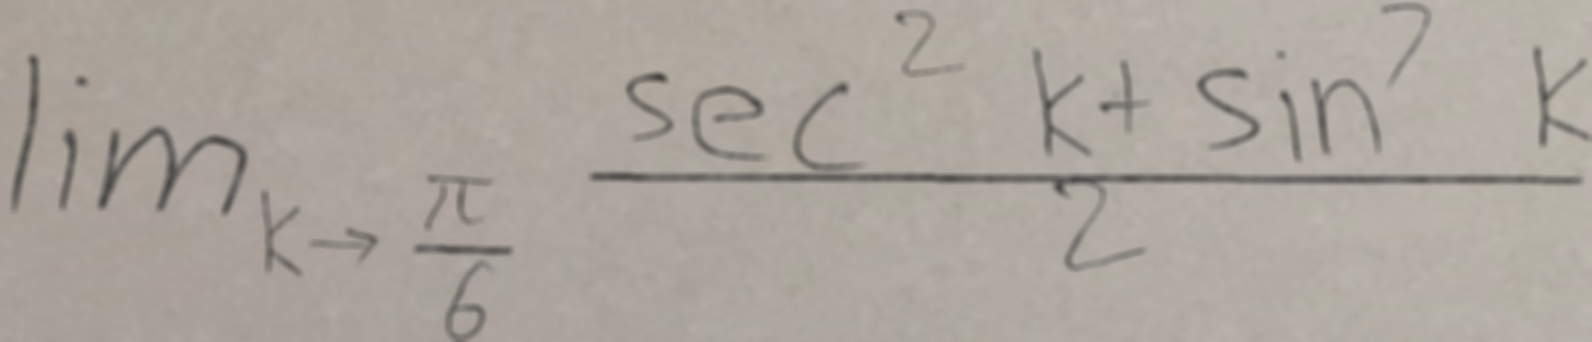 \lim_{k \to \frac{\pi}{6}} \frac{\sec^2 k + \sin^7 k}{2}